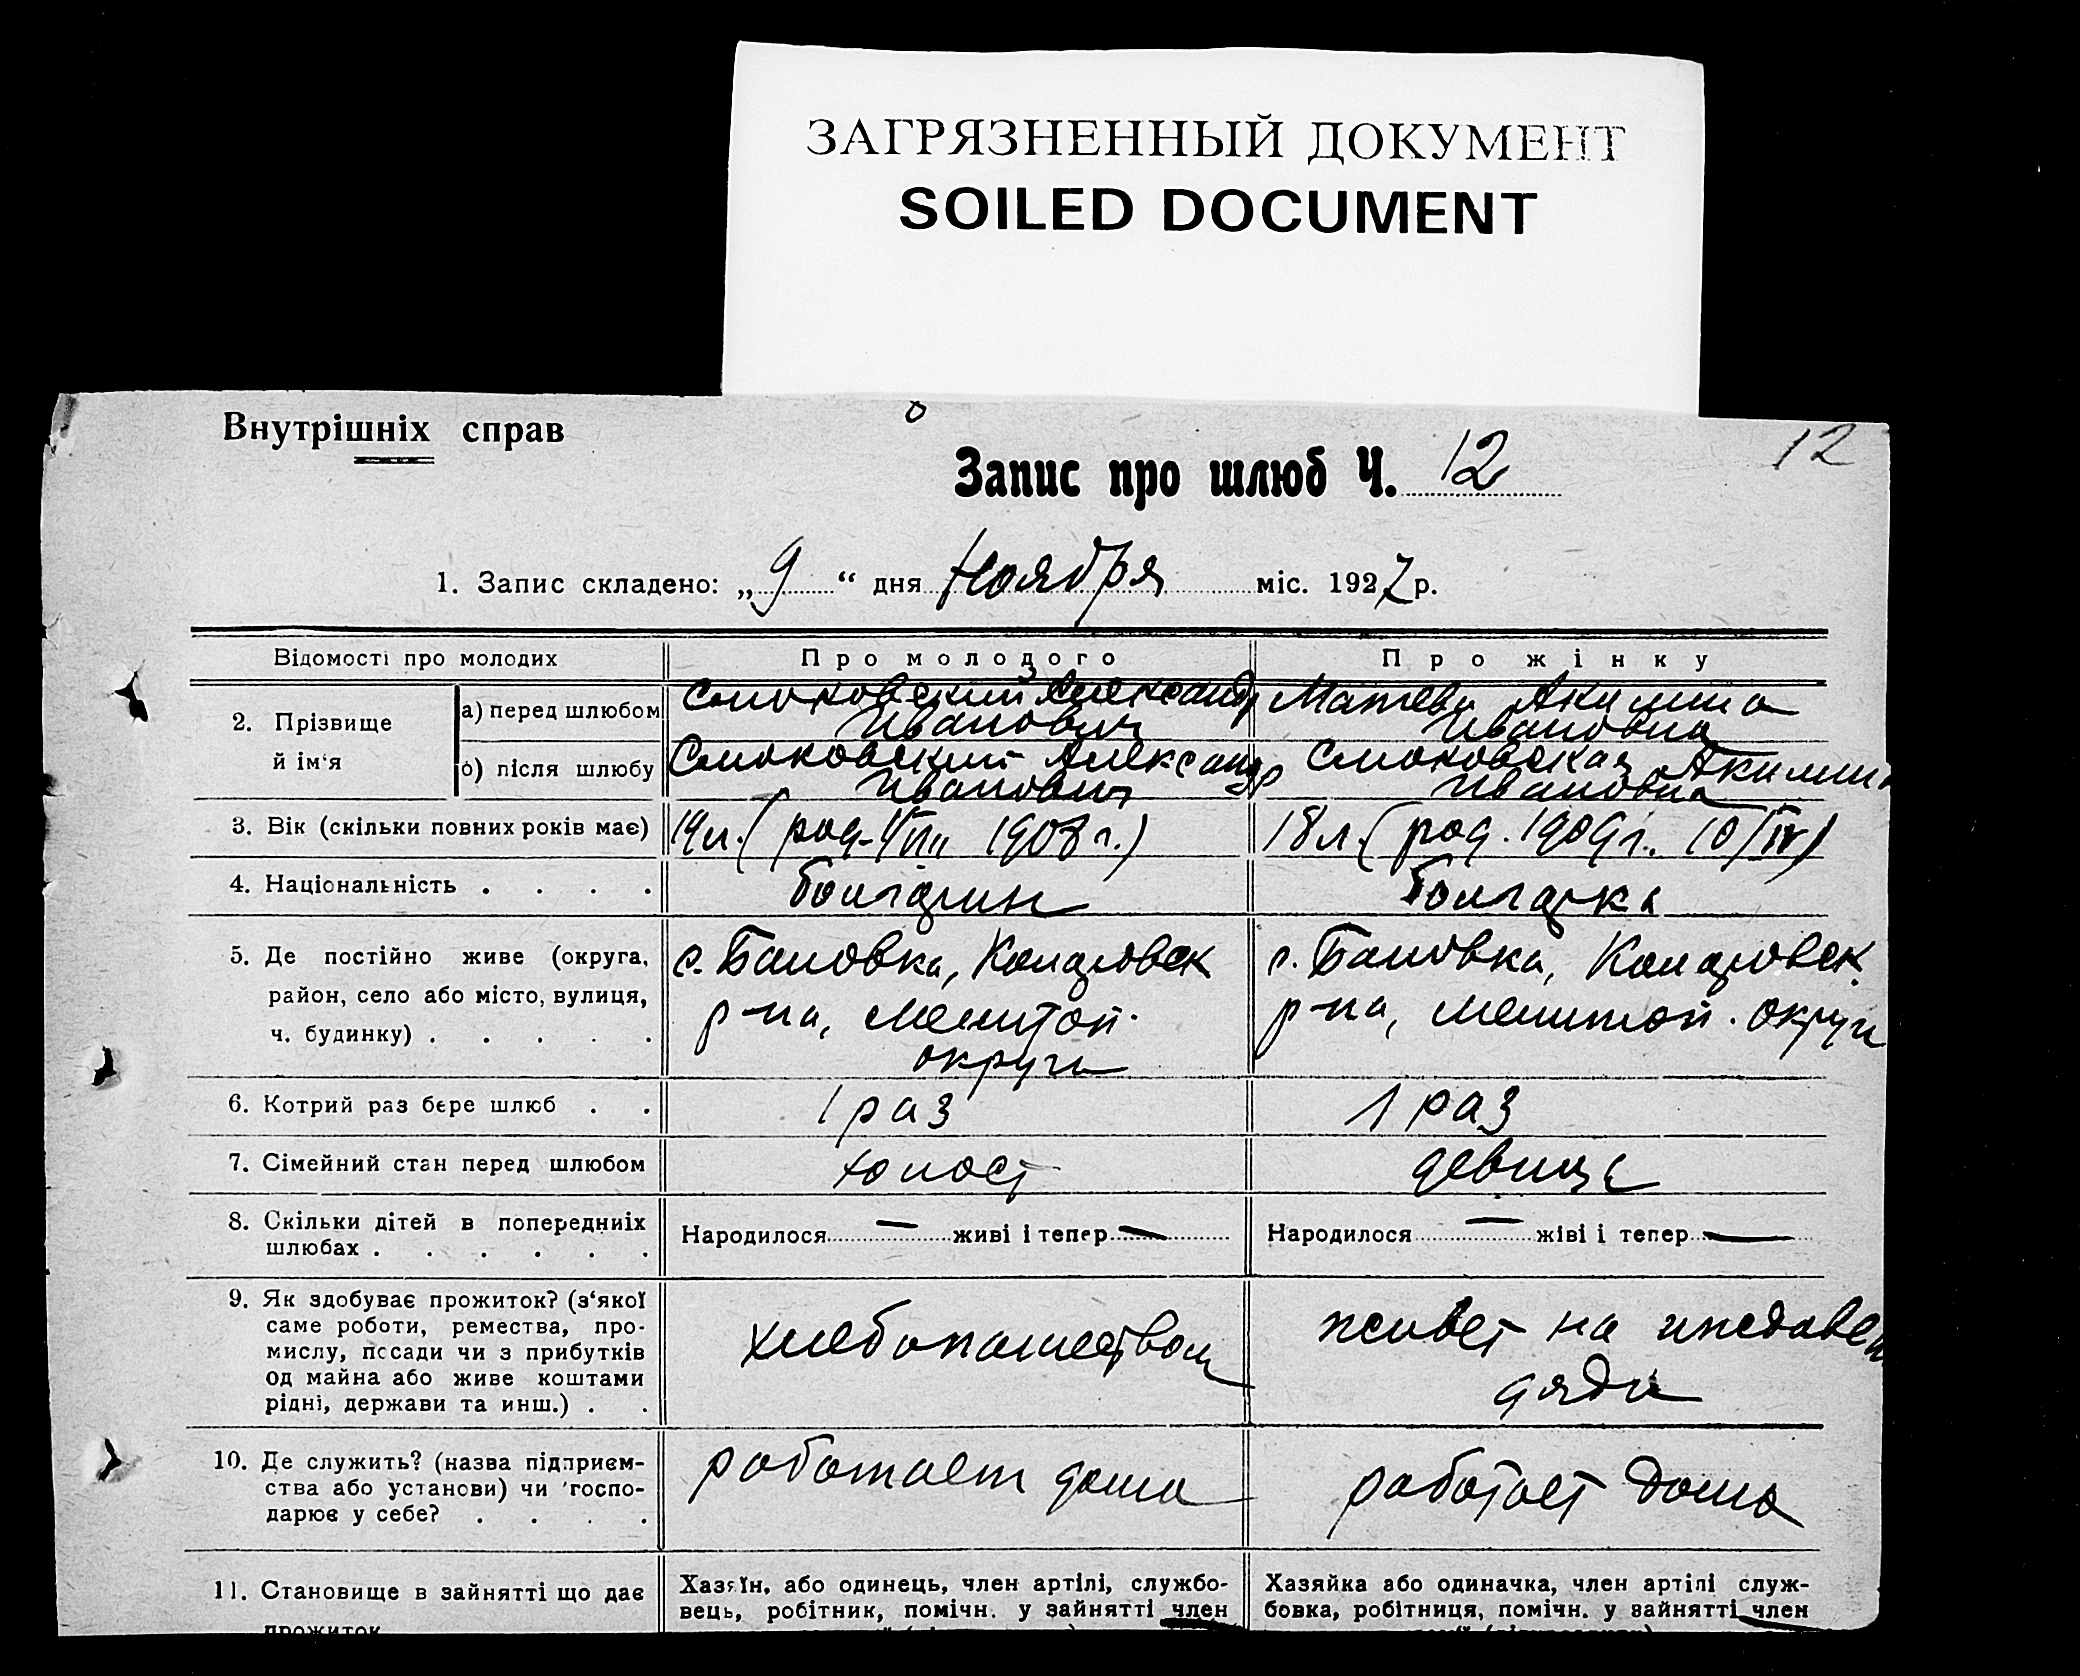 ЗАГРЯЗНЕННЫЙ ДОКУМЕНТ
SOILED DOCUMENT
Внутрішніх справ
Запис про шлюб Ч. 12
12
1. Запис складено: „9“ дня Ноября міс. 1927 р.
Відомості про молодих
Про молодого
Про жінку
2. Прізвище й ім‘я
а) перед шлюбом
Смоковский Александр
Иванович
Матева Акилина
Ивановна
б) після шлюбу
Смоковский Александр
Иванович
Смоковская Акилина
Ивановна
3. Вік (скільки повних років має)
19 л. (род. 1908 г.)
18 л. (род. 1909 г. 10/IV)
4. Національність . . . .
болгарин
болгарка
5. Де постійно живе (округа,
район, село або місто, вулиця,
ч. будинку) . . . . .
с. Бановка, Коларовск
р-на, Мелитоп.
округа
с. Бановка, Коларовск.
р-на, Мелитоп. округа
6. Котрий раз бере шлюб . .
1 раз
1 раз
7. Сімейний стан перед шлюбом
холост
девица
8. Скільки дітей в попередниіх
шлюбах . . . . . .
Народилося — живі і тепер —
Народилося — жіві і тепер —
9. Як здобуває прожиток? (з‘якої
саме роботи, ремества, про-
мислу, посади чи з прибутків
од майна або живе коштами
рідні, держави та инш.) . .
хлебопашеством
живет на иждивен
дяди
10. Де служить? (назва підприєм-
ства або установи) чи госпо-
дарює у себе? . . . .
работает дома
работает дома
11. Становище в зайнятті що дає
прожиток
Хазяїн, або одинець, член артілі, службо-
вець, робітник, помічн. у зайнятті член
Хазяйка або одиначка, член артілі служ-
бовка, робітниця, помічн. у зайнятті член